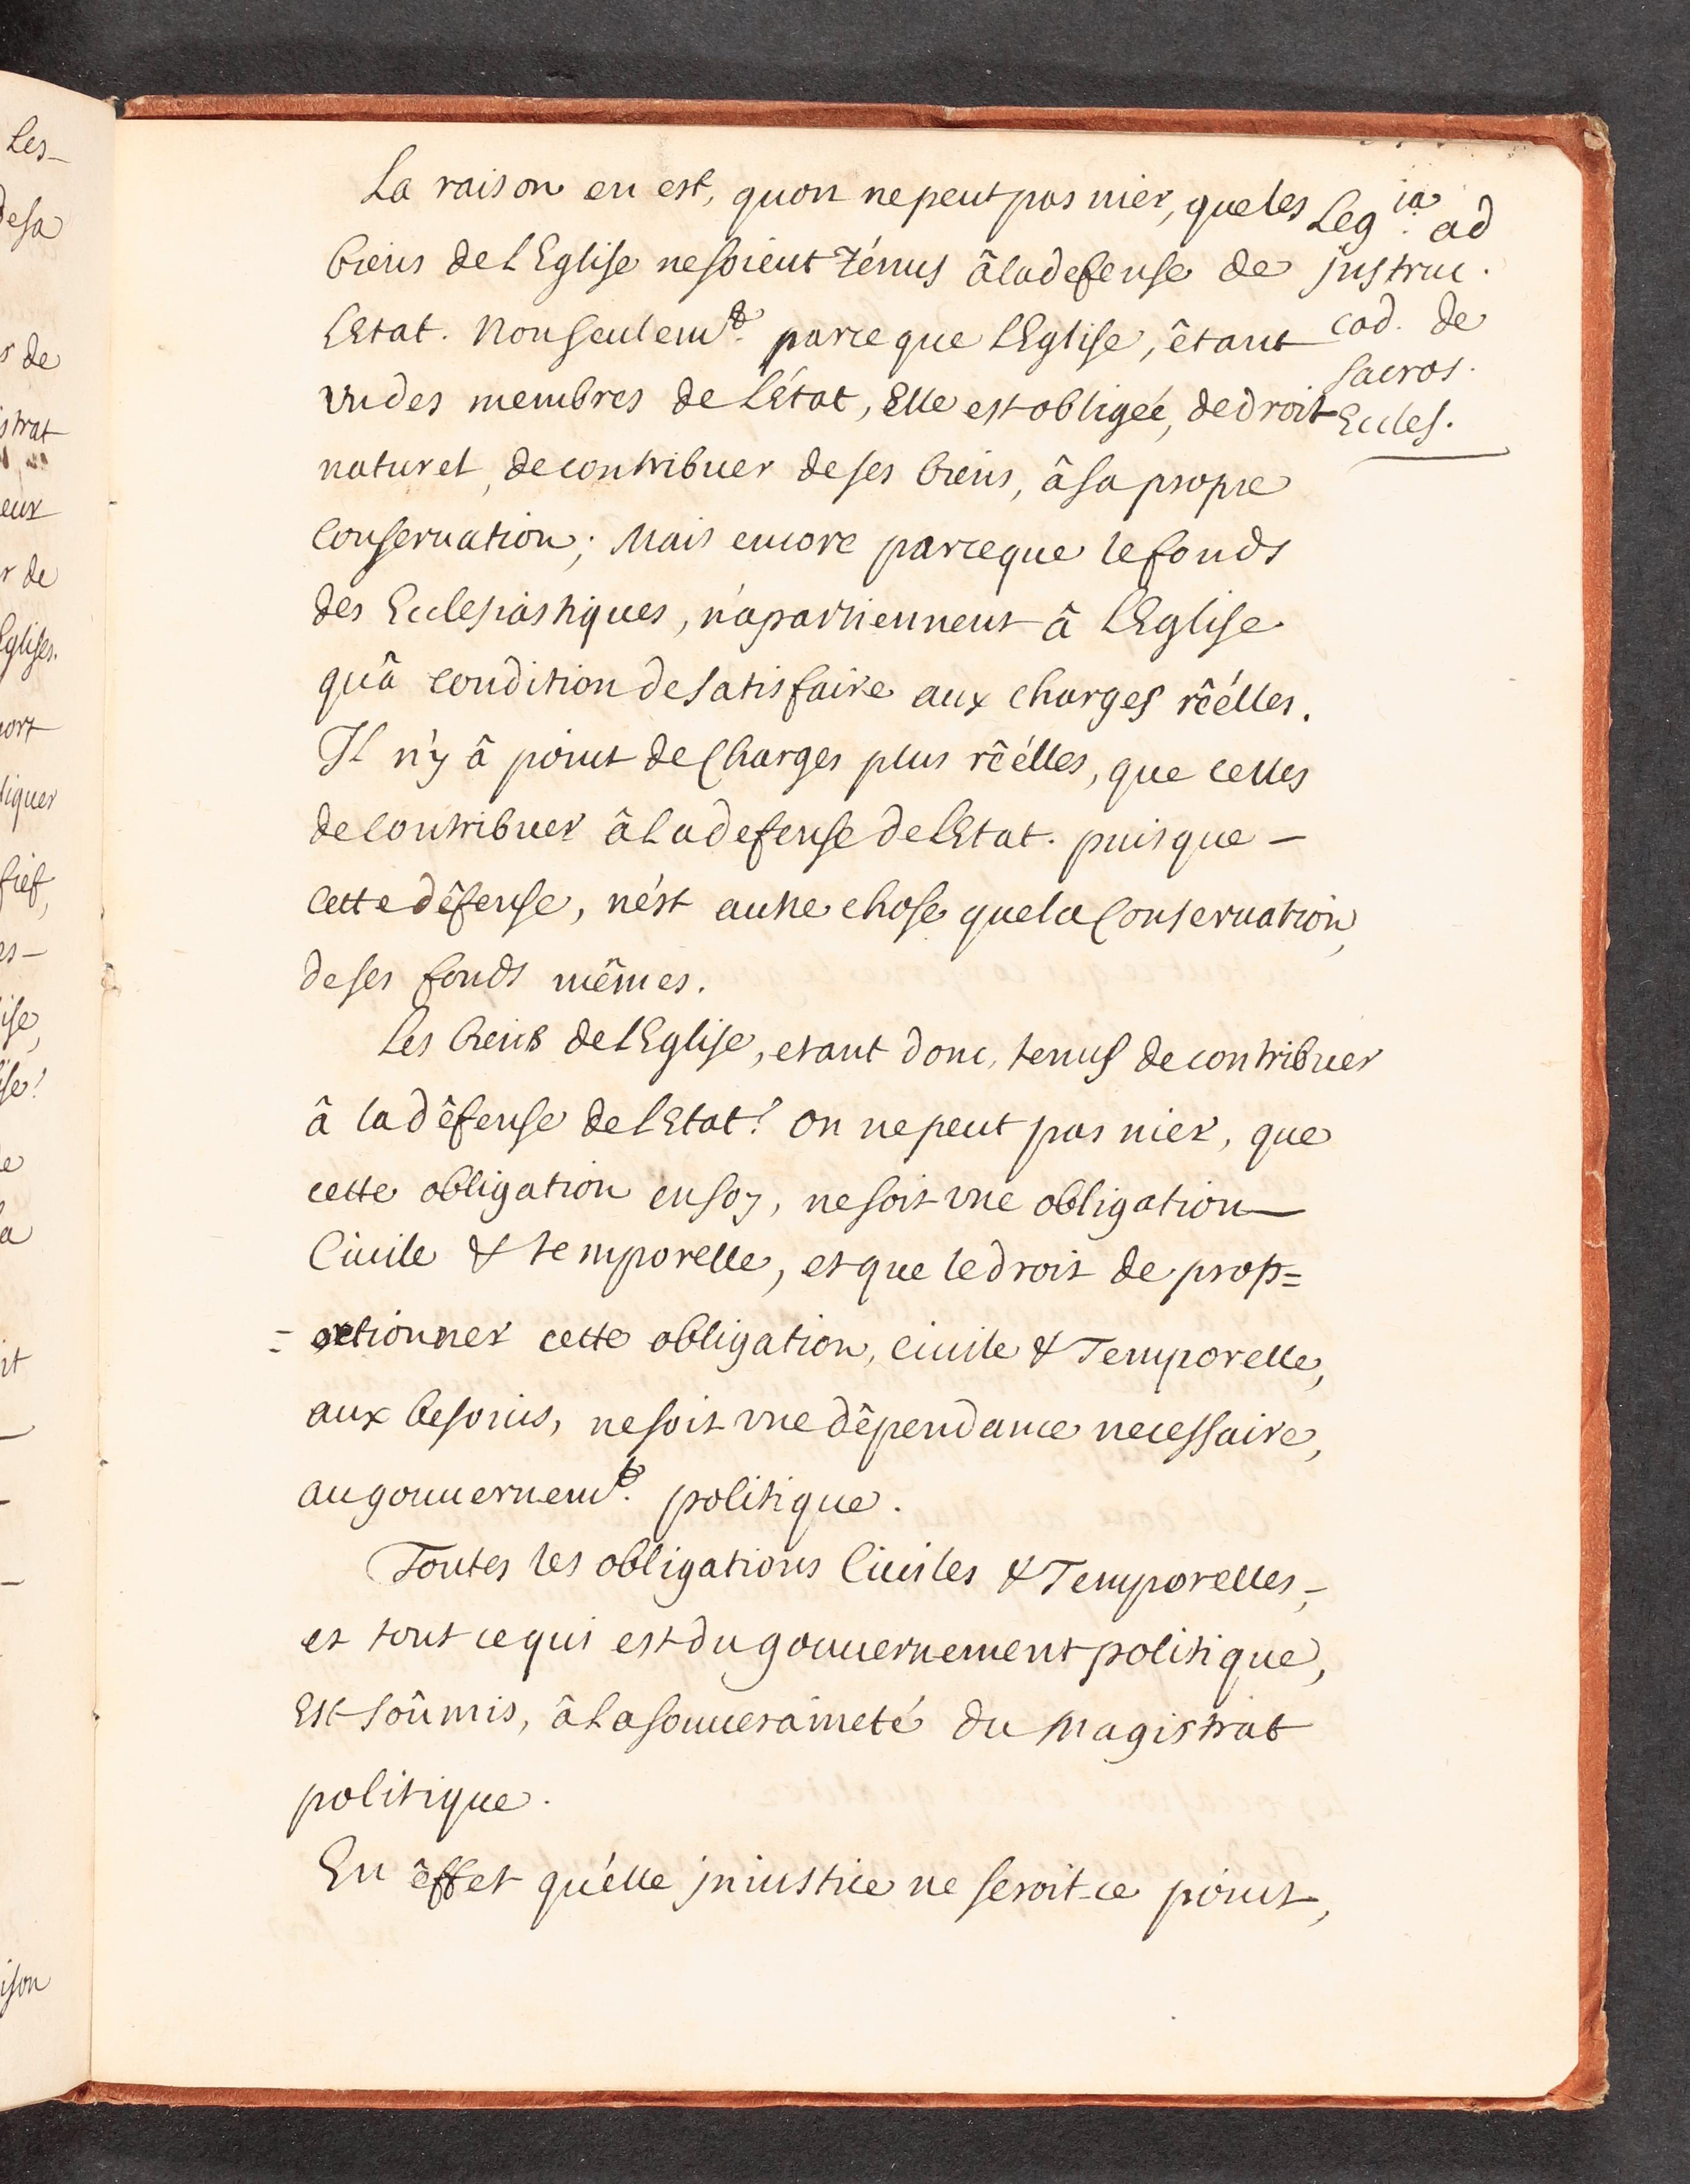 La raison en est, quon ne peut pas nier, que les
biens de l'Eglise ne soient ténus â la defense de
l'Etat. Non seulem.t parce que l'Eglise, êtant
vn des membres de l'état, Elle est obligeé, de droit
naturel, de contribuer de ses biens, â sa propre
conseruation; Mais encore parceque le fonds
des Ecclesiastiques, n'apartiennent â l'Eglise
qu'â condition de satisfaire aux charges rêélles.
Il n'y â point de Charges plus rêélles, que celles
de contribuer â la defense de l'Etat. puisque –
cette dêfense, n'ést autre chose que la Conseruation,
de ses fonds mêmes.
Les biens de l'Eglise, etant donc, tenus de contribuer
â la dêfense de l'Etat? on ne peut pas nier, que
cette obligation en soy, ne soit vne obligation
Ciuile & temporelle, et que le droit de prop=
=ortionner cette obligation, ciuile & Temporelle,
aux besoins, ne soit vne dêpendance necessaire,
au gouuernem.t politique.
Toutes les obligations Ciuiles & Temporelles,
et tout ce qui est du gouuernement politique,
Est soûmis, â la souueraineté du Magistrat
politique.
En êffet qu'élle jniustice ne seroit-ce point,
Leg. ia ad
jnstruc.
cod. de
sacros.
Eccles.
Les
de sa
s de
strat
eux
r de
Eglises.
port
liquer
fief,
es –
ise,
ise!
e
la
it
ison